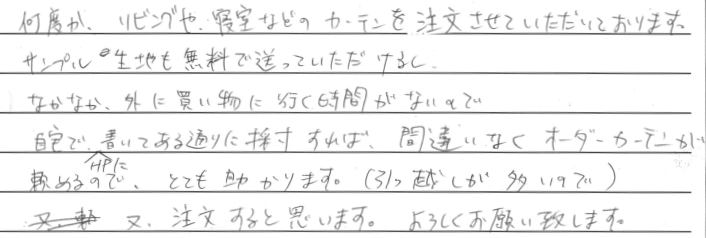 何度か、リビングや、寝室などのカーテンを注文させていただいております。
サンプルの生地も無料で送っていただけるし、
なかなか、外に買い物に行く時間がないので
自宅で、書いてある通りに採寸すれば、間違いなくオーダーカーテンが
HPに
頼めるので、とても助かります。(引っ越しが多いので)
又、注文すると思います。よろしくお願い致します。